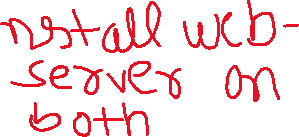 nstall web-
server on
both